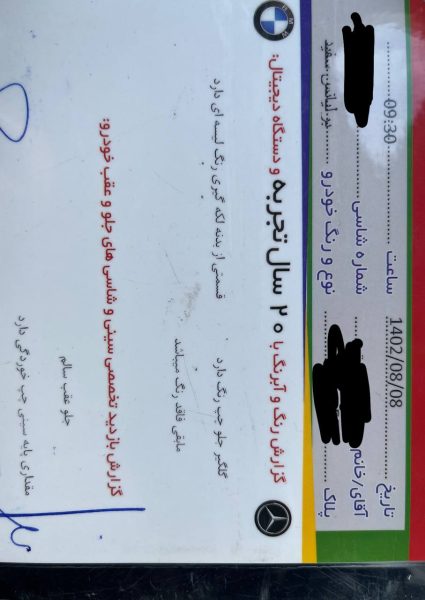 تاریخ 1402/08/08 ساعت 09:30
آقای/خانم شماره شاسی
پلاک نوع و رنگ خودرو برلیانس سفید
گزارش رنگ و آبرنگ با ۲۰ سال تجربه و دستگاه دیجیتال:
گلگیر جلو چپ رنگ دارد . قسمتی از بدنه لکه گیری رنگ لسه ای دارد
مابقی فاقد رنگ میباشد
گزارش بازدید تخصصی سینی و شاسی های جلو و عقب خودرو:
جلو عقب سالم
مقداری پایه سینی چپ خوردگی دارد